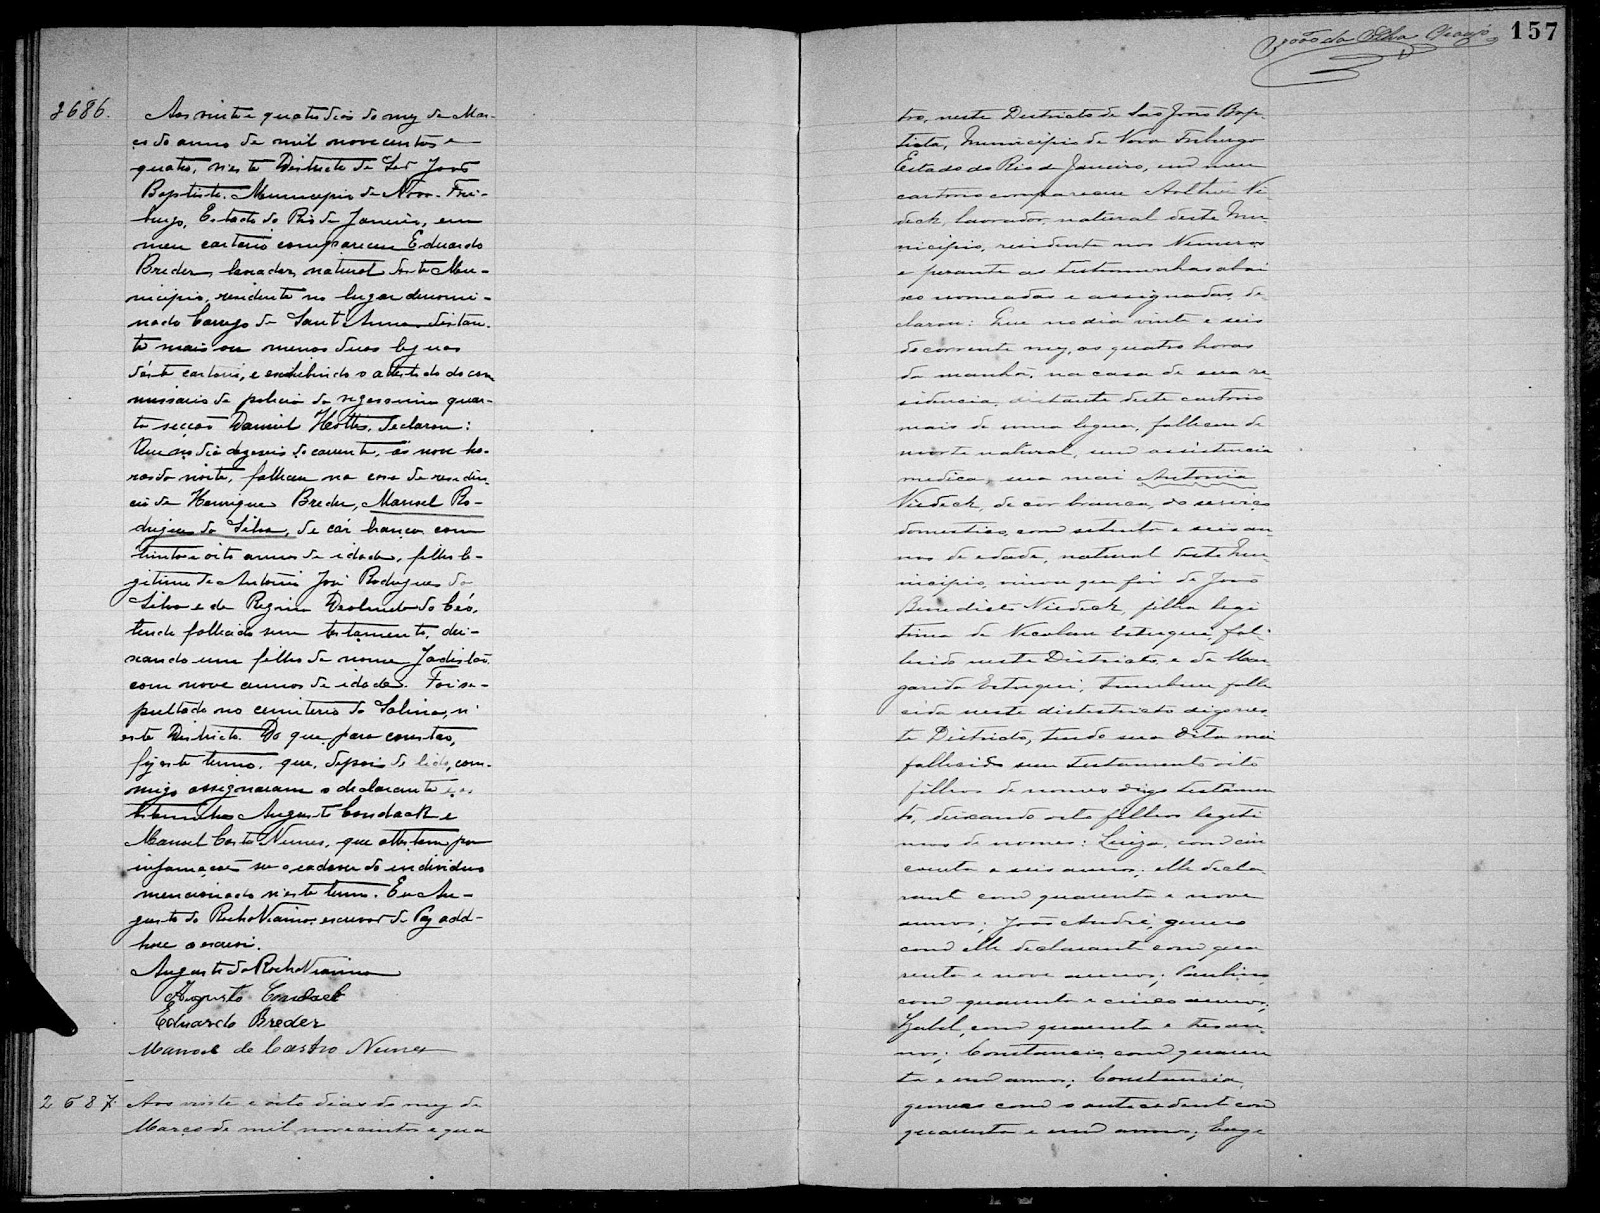 2686.
Aos vinte e quatro dias do mez de Mar-
ço do anno de mil novecentos e
quatro, n'este Districto de São João
Baptista, Municipio de Nova-Fri-
burgo, Estado do Rio de Janeiro, em
meu cartorio compareceu Eduardo
Breder, lavrador, natural deste Mu-
nicipio, residente no lugar denomi-
nado Corrego de Sant'Anna distan-
te mais ou menos duas leguas
dêste cartorio, e exhibindo o attestado do com
missario de policia da vigesima quar-
ta secção Daniel Hotts, declarou:
Que no dia dezeseis do corrente, ás nove ho-
ras da noite, falleceu na casa de residen-
cia de Henrique Breder, Manoel Ro-
drigues da Silva, de côr branca com
trinta e oito annos de idade, filho le-
gitimo de Antonio José Rodrigues da
Silva e de Regina Deolinda do Céo,
tendo fallecido sem testamento, dei-
xando um filho de nome
com nove annos de idade. Foi se-
pultado no cemiterio da Salina, n'
este Districto. Do que para constar,
fiz este termo, que, depois de lido, com-
migo assignaram o declarante e as
testemunhas Augusto Condack e
Manoel Castro Nunes, que attestam por
informações ser o cadaver do individuo
mencionado n'este termo. Eu Au-
gusto da Rocha Vianna, escrivão de Paz add-
hoc o escrevi.
Augusto da Rocha Vianna
Augusto Condack
Eduardo Breder
Manoel de Castro Nunes
2687. Aos vinte e oito dias do mez de
Março de mil novecentos e qua
João da Silva Araujo 157
tro, neste Districto de São João Bap-
tista, Municipio de Nova Friburgo
Estado do Rio de Janeiro, em meu
cartorio compareceu Ni-
deck, lavrador, natural deste Mu-
nicipio, residente nos
e perante as testemunhas abai
xo nomeadas e assignadas, de-
clarou: Que no dia vinte e seis
do corrente mez, as quatro horas
da manhã, na casa de sua re-
sidencia, distante deste cartorio
mais de uma legua, falleceu de
morte natural, sem assistencia
medica, sua mai Antonia
Niedeck, de côr branca, do serviço
domestico, com setenta e seis an-
nos de edade, natural deste Mu-
nicipio, viuva que foi de João
Benedicto Niedeck, filha legi
tima de Nicolau, fal-
lecido neste Districto, e de Mar
garida, tambem falle
cida neste distestricto digo nes-
te Districto, tendo sua dita mai
fallecido sem testamento oito
filhos de nomes digo testamen
to, deixando oito filhos legiti
mos de nomes: Luiza, com cin
coenta e seis annos; elle decla
rante com quarenta e nove
annos; João André, gemeo
com elle declarante com qua
renta e nove annos; Paulino
com quarenta e cinco annos;
Izabel, com quarenta e tres an-
nos; Constancio com quaren
ta e um annos; Constancia,
gemea com o antecedente com
quarenta e um annos; Euge